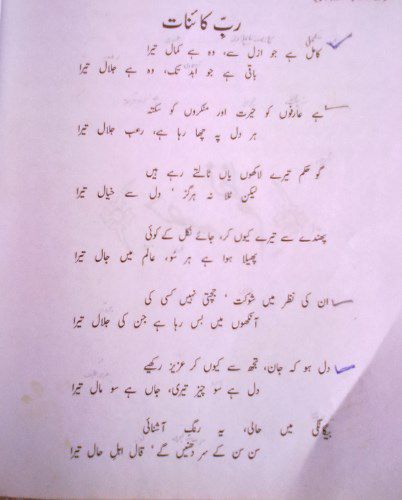 ربّ کائنات
کامل ہے جو ازل سے، وہ ہے کمال تیرا
باقی ہے جو ابد تک، وہ ہے جلال تیرا
ہے عارفوں کو حیرت اور منکروں کو سکتہ
ہر دل پہ چھا رہا ہے، رعب جلال تیرا
گو حکم تیرے لاکھوں یاں ٹالتے رہے ہیں
لیکن ٹلا نہ ہرگز، دل سے خیال تیرا
پھندے سے تیرے کیوں کر، جائے نکل کے کوئی
پھیلا ہوا ہے ہر سُو، عالم میں جال تیرا
ان کی نظر میں شوکت، جچتی نہیں کسی کی
آنکھوں میں بس رہا ہے جن کی جلال تیرا
دل ہو کہ جان، تجھ سے کیوں کر عزیز رکھیے
دل ہے سو چیز تیری، جاں ہے سو مال تیرا
بیگانگی میں حالی، یہ رنگِ آشنائی
سن سن کے سر دھنیں گے، قال اہلِ حال تیرا